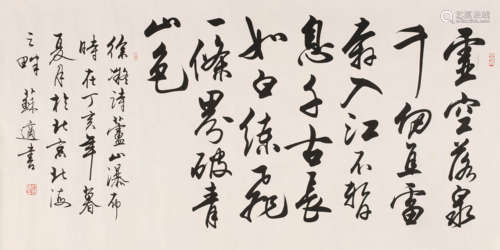 虛空落泉
千仞直雷
奔入江不暫
息千古長
如白練飛
一條界破青
山色
徐凝詩蘆山瀑布
時在丁亥年暮
夏月於北京北海
之畔蘇適書